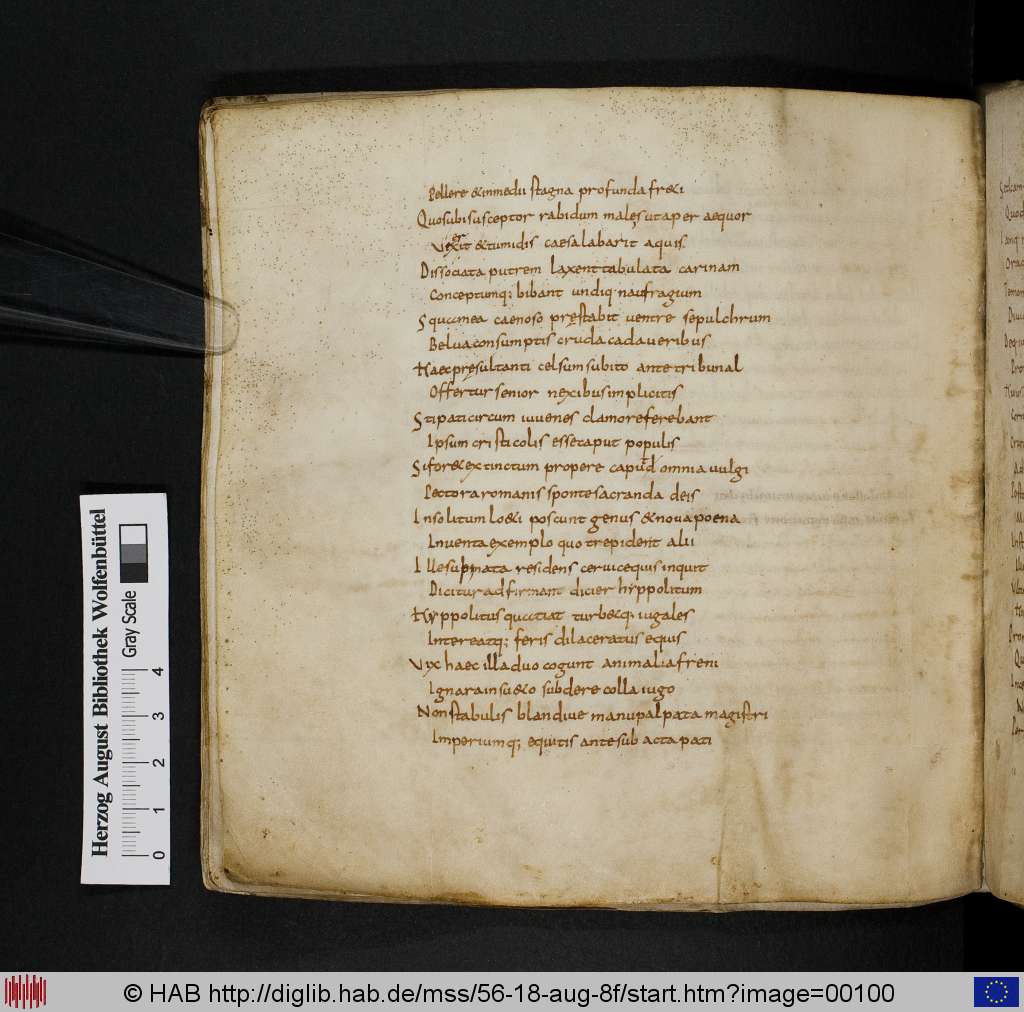 Pellere & inmedii stagna profunda fr&i
Quos ubi susceptor rabidum male suta per aequor
Vexerit & tumidis caesa labarit aquis
Dissociata putrem laxent tabulata carinam
Conceptumq; bibant undiq naufragium
Squamea caenoso pręstabit uentre sepulchrum
Belua consumptis cruda cadaueribus
Haec pręsultanti celsum subito ante tribunal
Offertur senior nexibus implicitis
Stipati circum iuuenes clamore ferebant
Ipsum cristicolis esse caput populis
Si for& extinctum propere caput omnia uulgi
Pectora romanis sponte sacranda deis
Insolitum lo&i poscunt genus & noua poena
Inuenta exemplo quo trepident alii
Ille supinata residens ceruice quis inquit
Dicitur adfirmant dicier hyppolitum
Hyppolitus quatiat turb&q; iugales
Intereatq; feris dilaceratus equis
Vix haec illa duo cogunt animalia freni
Ignara insu&o subdere colla iugo
Non stabulis blandiue manu palpata magistri
Imperiumq; equitis ante subacta pati
Herzog August Bibliothek Wolfenbüttel
Gray Scale
0 1 2 3 4
© HAB http://diglib.hab.de/mss/56-18-aug-8f/start.htm?image=00100